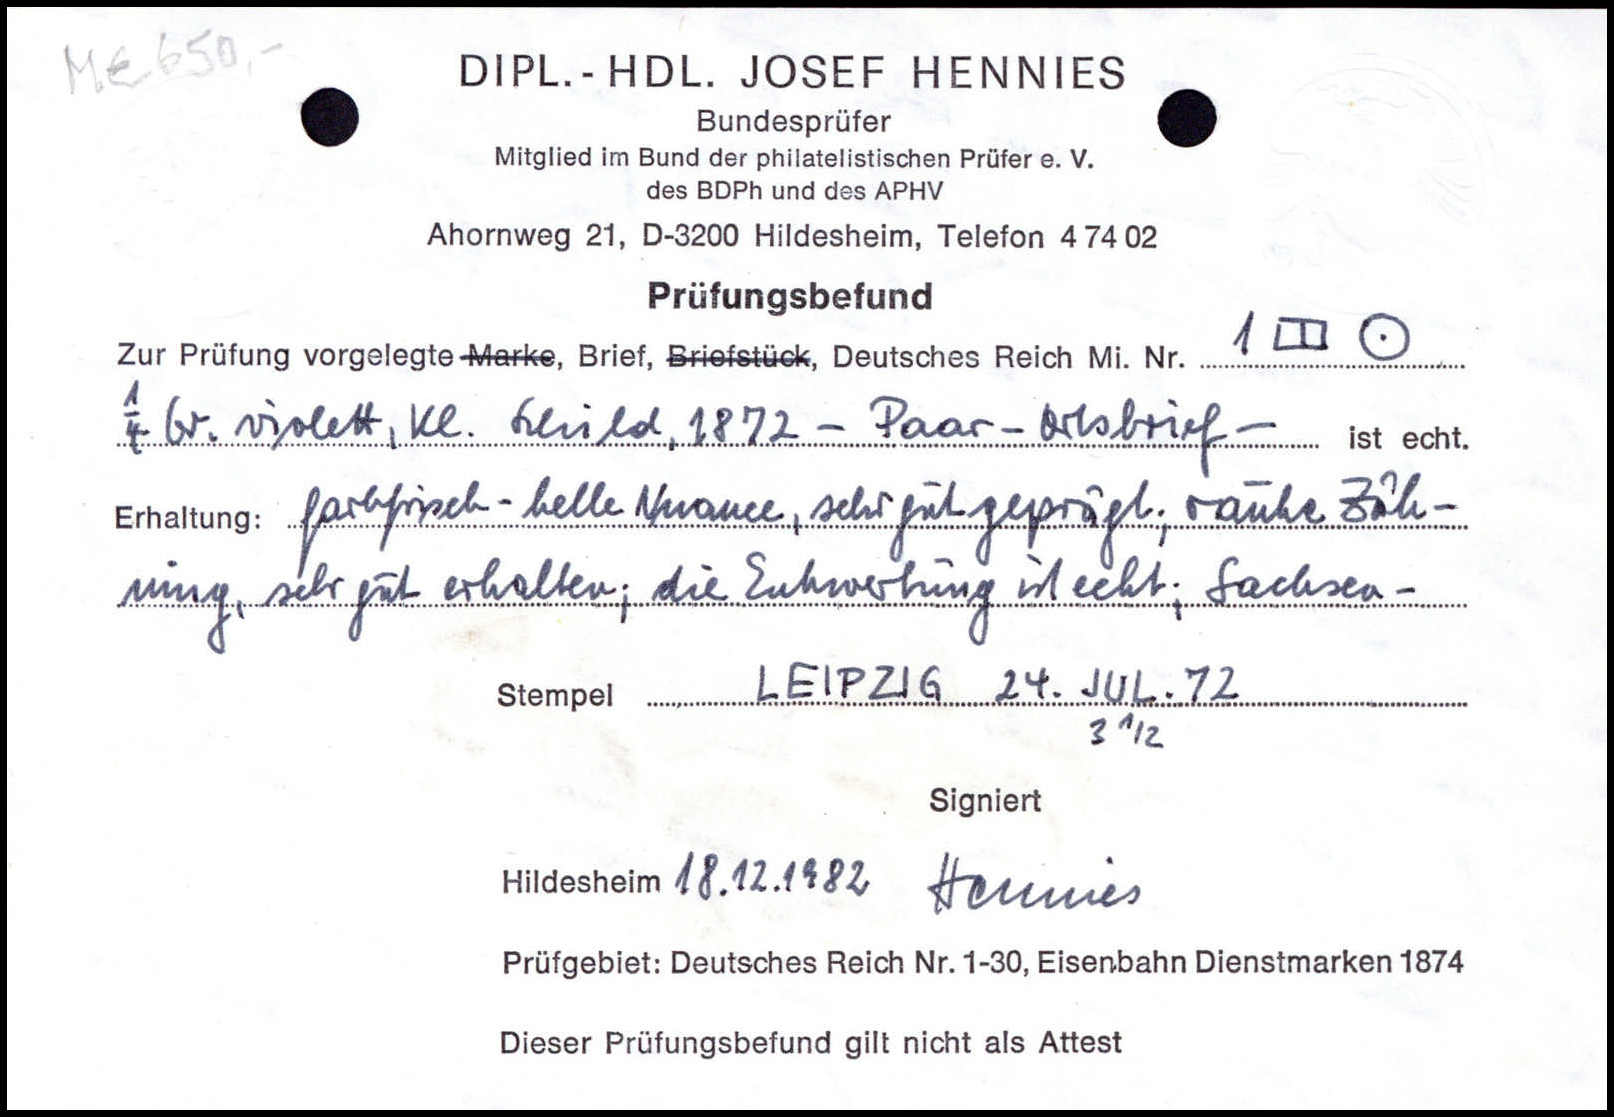 M€ 650,-
DIPL.-HDL. JOSEF HENNIES
Bundesprüfer
Mitglied im Bund der philatelistischen Prüfer e. V.
des BDPh und des APHV
Ahornweg 21, D-3200 Hildesheim, Telefon 4 74 02
Prüfungsbefund
Zur Prüfung vorgelegte Marke, Brief, Briefstück, Deutsches Reich Mi. Nr. 1
1/4 Gr. violett, Kl. Schild, 1872 - Paar - Ortsbrief - ist echt.
Erhaltung: farbfrisch - helle Nuance, sehr gut geprägt, rauhe Zäh-
nung, sehr gut erhalten; die Entwertung ist echt; Sachsen-
Stempel LEIPZIG 24. JUL. 72
3 1/2
Signiert
Hildesheim 18.12.1982 Hennies
Prüfgebiet: Deutsches Reich Nr. 1-30, Eisenbahn Dienstmarken 1874
Dieser Prüfungsbefund gilt nicht als Attest